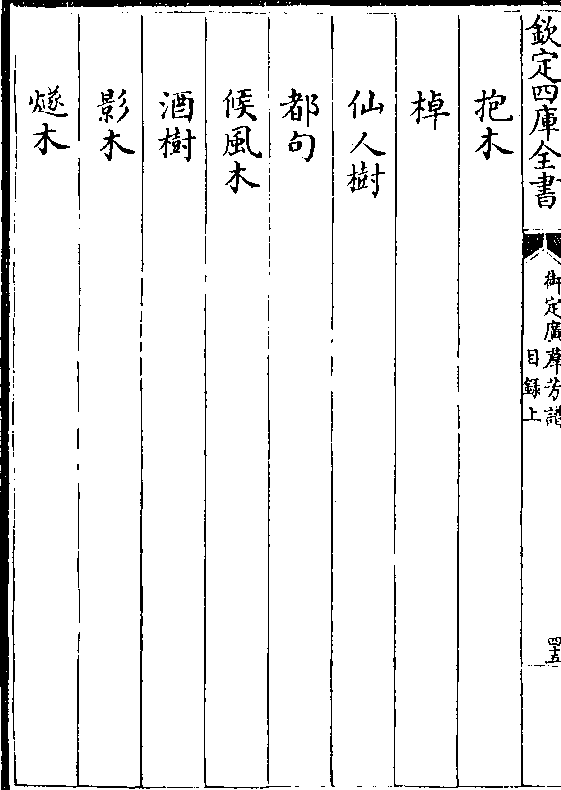 欽定四庫全書
御定廣羣芳譜
目錄上
四十五
抱木
棹
仙人樹
都句
候風木
酒樹
影木
燧木